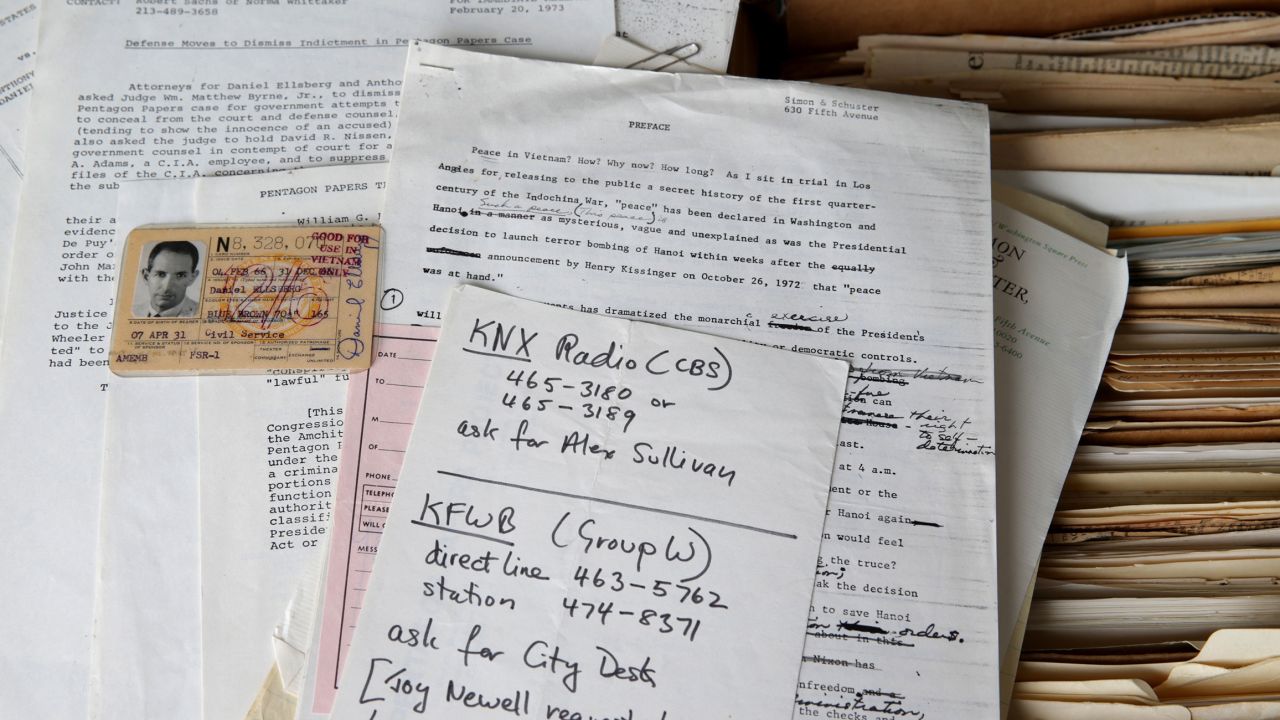 CONTACT: Robert Sachs or Norma Whittaker
213-489-3658
February 20, 1973
Defense Moves to Dismiss Indictment in Pentagon Papers Case
Attorneys for Daniel Ellsberg and Antho
asked Judge Wm. Matthew Byrne, Jr., to dismiss
Pentagon Papers case for government attempts t
to conceal from the court and defense counsel,
(tending to show the innocence of an accused)
also asked the judge to hold David R. Nissen,
government counsel in contempt of court for a
A. Adams, a C.I.A. employee, and to suppress
files of the C.I.A. concerning
the sub
STATES
vs.
ANTHONY
DANIEL
PENTAGON PAPERS T
William G.
their a
evidenc
De Puy'
order o
John Ma
with the
Justice
to the J
Wheeler
ted" to
had been
T
N8, 328, 07
GOOD FOR
USE IN
VIETNAM
ONLY
04 FEB 66 31 DEC
Daniel ELLSBERG
BLUE/BROWN 70½" 165
DATE OF BIRTH OF BEARER
07 APR 31 Civil Service
AMEMB FSR-1
"lawful" fu
[This
Congressio
the Amchit
Pentagon
under the
a crimina
portions
function
authorit
classifi
Preside
Act or
1
will
DATE
TO
M
OF
PHONE
TELEPH
PLEASE
WILL C
MESS
Simon & Schuster
630 Fifth Avenue
PREFACE
Peace in Vietnam? How? Why now? How long? As I sit in trial in Los
Angies for releasing to the public a secret history of the first quarter-
century of the Indochina War, "peace" has been declared in Washington and
Such a peace (this peace) is
Hanoi in a manner as mysterious, vague and unexplained as was the Presidential
decision to launch terror bombing of Hanoi within weeks after the equally
announcement by Henry Kissinger on October 26, 1972 that "peace
was at hand."
exercise
ments has dramatized the monarchial of the Presidents
or democratic controls.
Vietnam
bombing
can
their
House right
to self-
determination
ast.
at 4 a.m.
ent or the
Hanoi again
on would feel
the truce?
ak the decision
n to save Hanoi
orders.
about in this
Nixon has
nfreedom and a
ministration,
the checks and
KNX Radio (CBS)
465-3180 or
465-3189
ask for Alex Sullivan
KFWB (Group W)
direct line 463-5762
station 474-8371
ask for City Desk
[Joy Newell
Washington Square Press
ION
&
TER,
Fifth Avenue
10020
5-6400